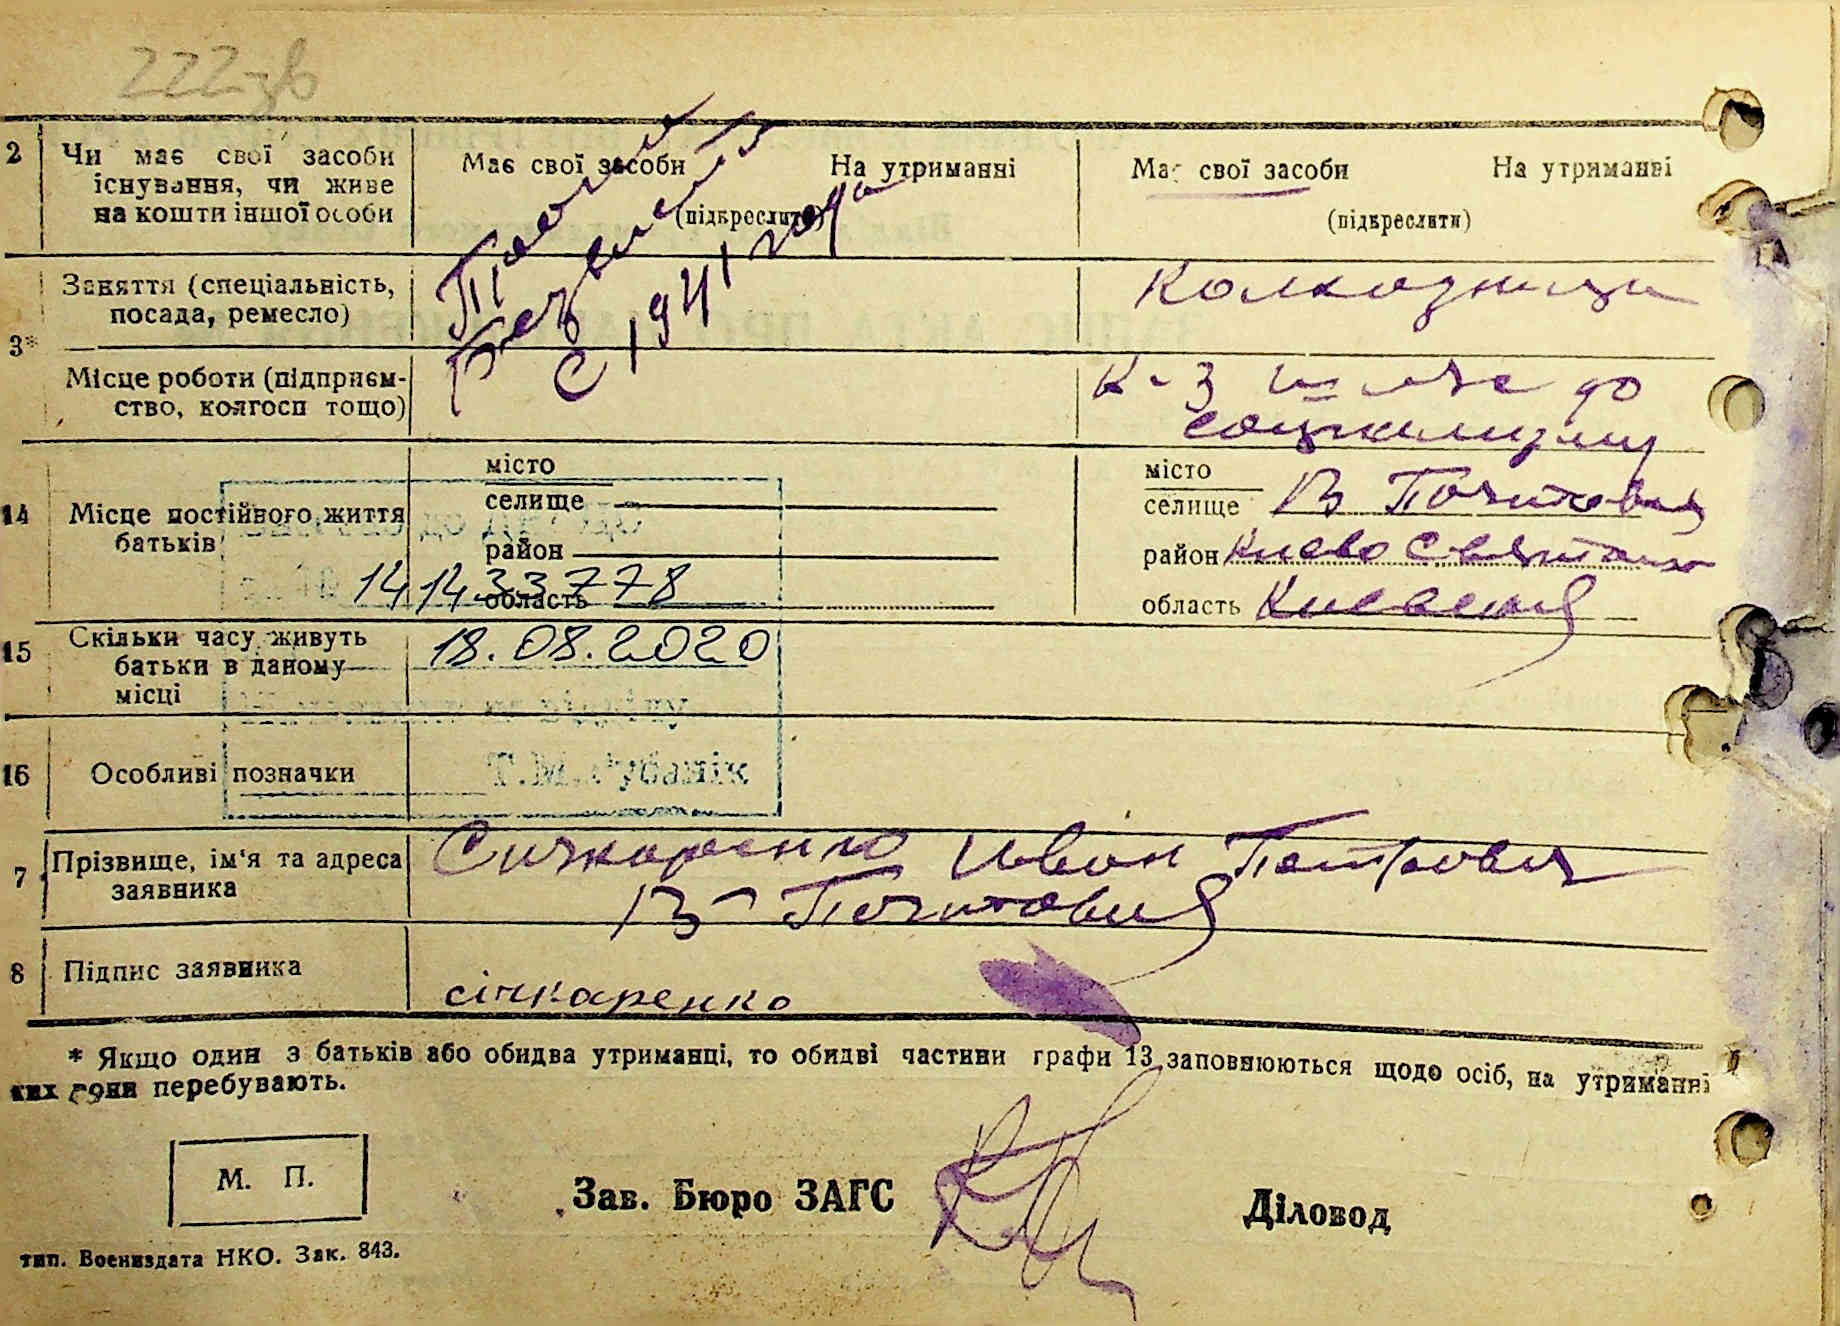 222зв
2 Чи має свої засоби існування, чи живе на кошти іншої особи
Має свої засоби На утриманні
(підкреслити)
Має свої засоби На утриманні
(підкреслити)
Пропал
без вести
с 1941 года
3* Заняття (спеціальність, посада, ремесло)
Колхозница
Місце роботи (підприємство, колгосп тощо)
К-з Шлях до
социализму
14 Місце постійного життя батьків
місто
селище
район
область
місто
селище В Почитовия
район Киево Святош
область Киевския
1414 33 778
15 Скільки часу живуть батьки в даному місці
18.08.2020
16 Особливі позначки
Т.М.Губанік
7 Прізвище, ім'я та адреса заявника
Сичкаренко Иван Петрович
В-Почитовия
8 Підпис заявника
січкаренко
* Якщо один з батьків або обидва утриманці, то обидві частини графи 13 заповнюються щодо осіб, на утриманні
ких вони перебувають.
М. П.
Зав. Бюро ЗАГС
Діловод
тип. Воениздата НКО. Зак. 843.